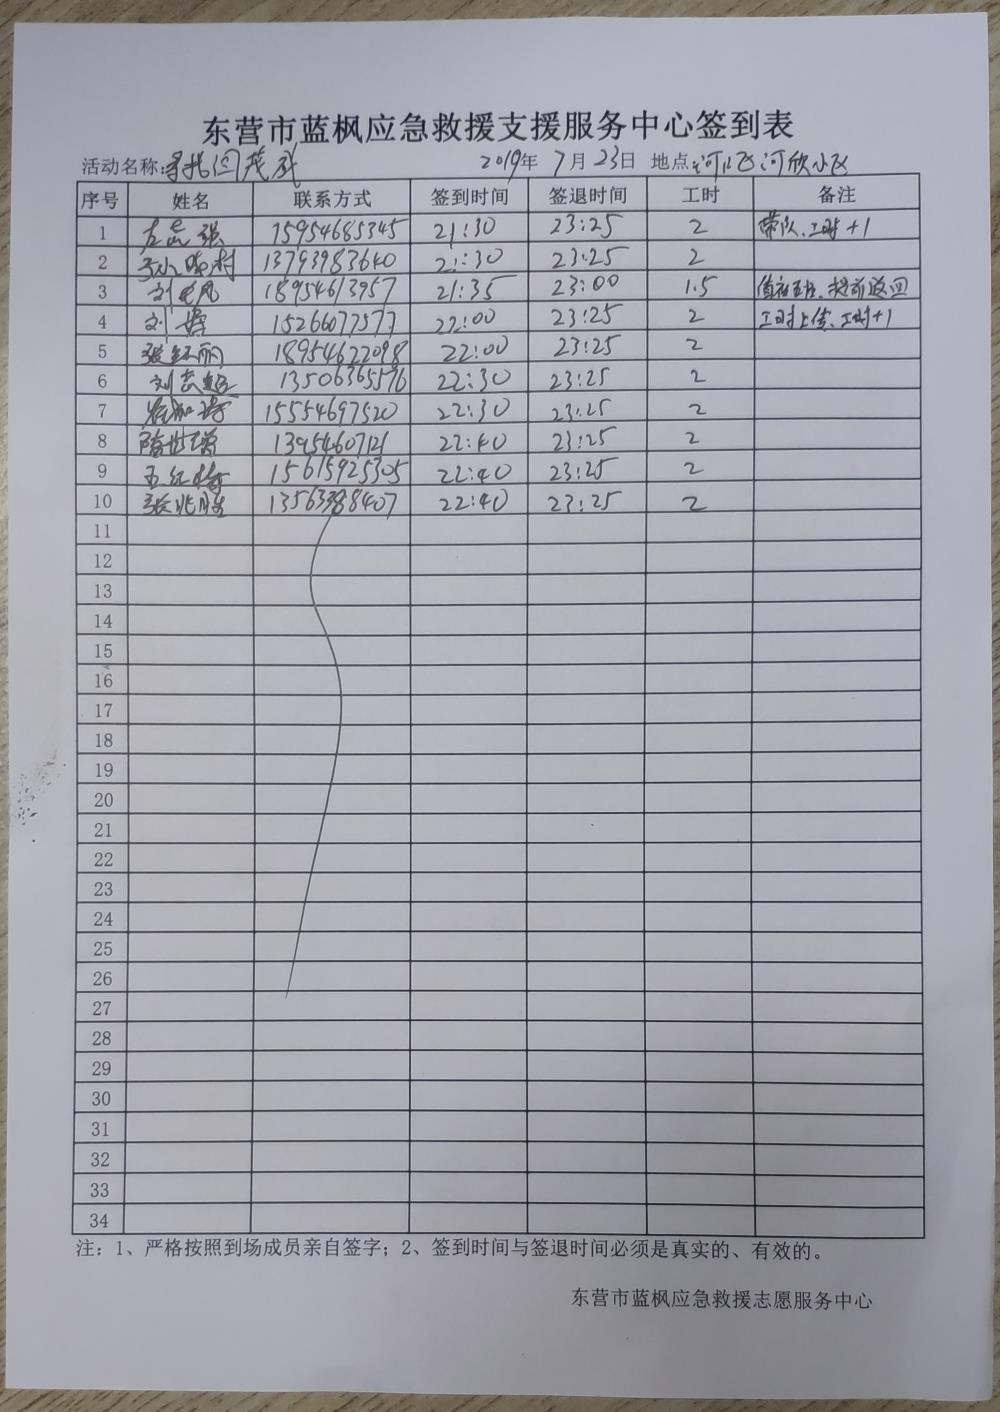 东营市蓝枫应急救援支援服务中心签到表
活动名称:寻找闫茂武 2019年 7月23日 地点:河口区河欣小区
序号 姓名 联系方式 签到时间 签退时间 工时 备注
1 左 强 15954685345 21:30 23:25 2 带队、工时+1
2 13793983640 21:30 23:25 2
3 刘 凤 18954613957 21:35 23:00 1.5 值夜班、提前返回
4 刘 15266077577 22:00 23:25 2 工时上传、工时+1
5 张 丽 18954622098 22:00 23:25 2
6 刘志超 13506365576 22:30 23:25 2
7 15554697520 22:30 23:25 2
8 隋世 13954607121 22:40 23:25 2
9 王红梅 15615925305 22:40 23:25 2
10 张兆胜 13563388407 22:40 23:25 2
11
12
13
14
15
16
17
18
19
20
21
22
23
24
25
26
27
28
29
30
31
32
33
34
注：1、严格按照到场成员亲自签字；2、签到时间与签退时间必须是真实的、有效的。
东营市蓝枫应急救援志愿服务中心